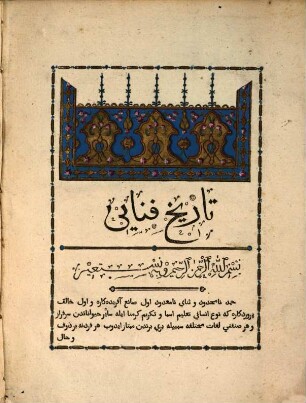 تاريخ فنايى
بسم الله الرحمن الرحيم وبه نستعين
حمد نامعدود و ثناى نامحدود اول صانع آفريده‌كاره و اول خالق
پروردكاره كه نوع انسانى تعليم اسما و تكريم كرمنا ايله سائر حيواناتدن سرفراز
و هر صنفنى لغات مختلفه سبيله برى برندن ممتاز ايدوب هر فردنه بر ذوق
و حال